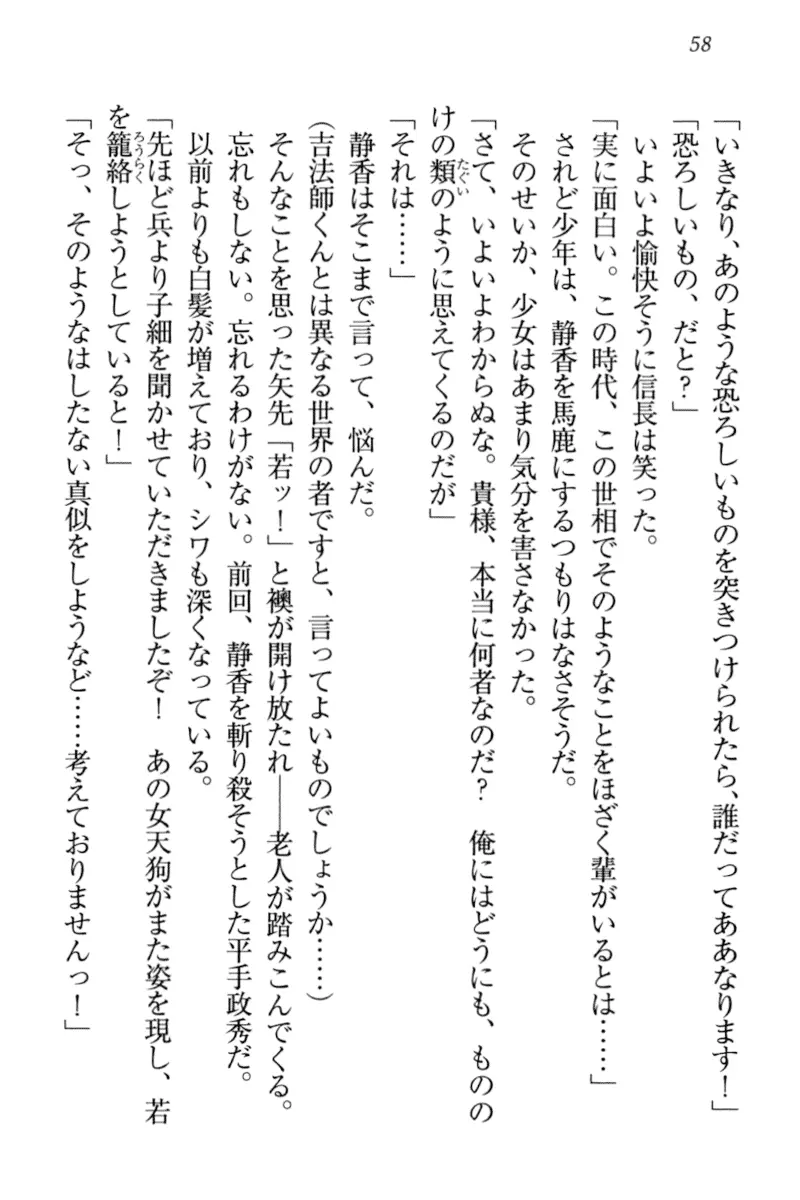 58
「いきなり、あのような恐ろしいものを突きつけられたら、誰だってああなります！」
「恐ろしいもの、だと？」
いよいよ愉快そうに信長は笑った。
「実に面白い。この時代、この世相でそのようなことをほざく輩がいるとは……」
されど少年は、静香を馬鹿にするつもりはなさそうだ。
そのせいか、少女はあまり気分を害さなかった。
「さて、いよいよわからぬな。貴様、本当に何者なのだ？　俺にはどうにも、ものの
けの類のように思えてくるのだが」
たぐい
「それは……」
静香はそこまで言って、悩んだ。
（吉法師くんとは異なる世界の者ですと、言ってよいものでしょうか……）
そんなことを思った矢先「若ッ！」と襖が開け放たれ――老人が踏みこんでくる。
忘れもしない。忘れるわけがない。前回、静香を斬り殺そうとした平手政秀だ。
以前よりも白髪が増えており、シワも深くなっている。
「先ほど兵より子細を聞かせていただきましたぞ！　あの女天狗がまた姿を現し、若
を籠絡しようとしていると！」
ろうらく
「そっ、そのようなはしたない真似をしようなど……考えておりませんっ！」